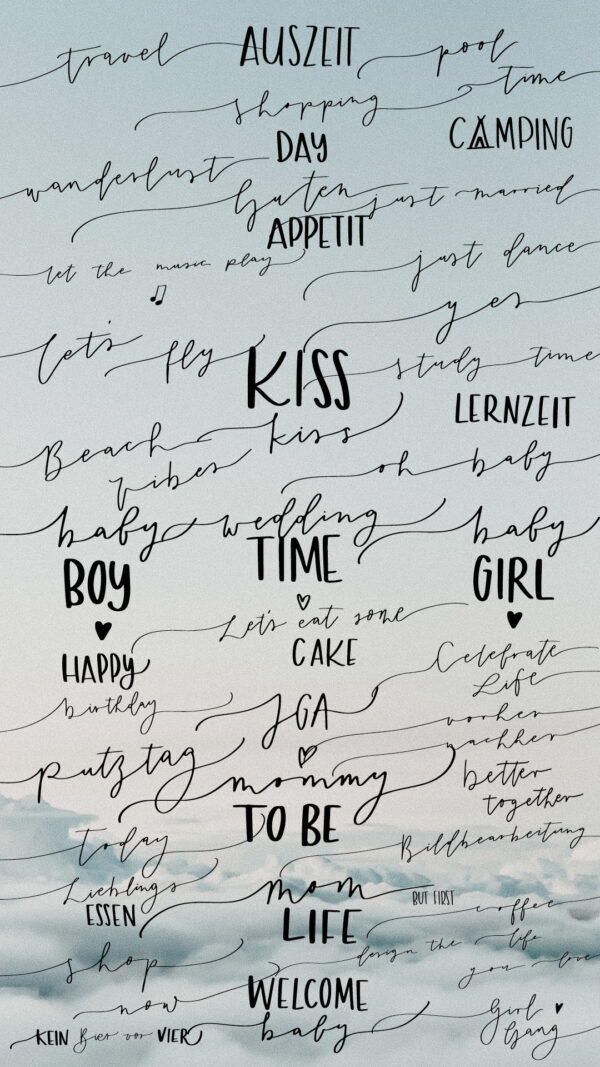 travel
AUSZEIT
pool
time
shopping
DAY
CAMPING
wanderlust
Guten
APPETIT
just married
let the music play
just dance
yes
let's fly
KISS
kiss
study time
LERNZEIT
Beach
vibes
oh baby
baby
BOY
wedding
TIME
baby
GIRL
Let's eat some
CAKE
HAPPY
birthday
Celebrate
Life
JGA
vorher
nachher
putztag
mommy
TO BE
better
together
today
Bildbearbeitung
Lieblings
ESSEN
mom
LIFE
BUT FIRST
coffee
shop
now
design the life
you love
WELCOME
baby
KEIN Bier vor VIER
Girl
Gang